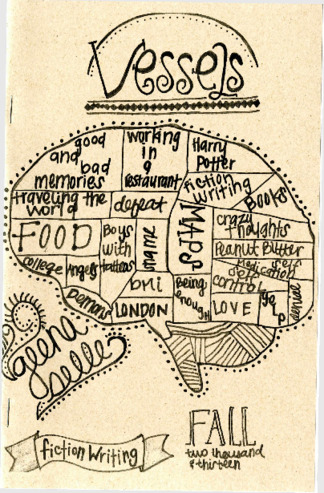 Vessels
good
and bad
memories
working
in
a
restaurant
Harry
Potter
fiction
writing
Books
traveling the
world
defeat
MAPS
crazy
thoughts
FOOD
Boys
with
tattoos
Peanut Butter
college
Angels
self
control
Demons
LONDON
Being
enough
LOVE
denial
geena
fiction Writing
FALL
two thousand
& thirteen